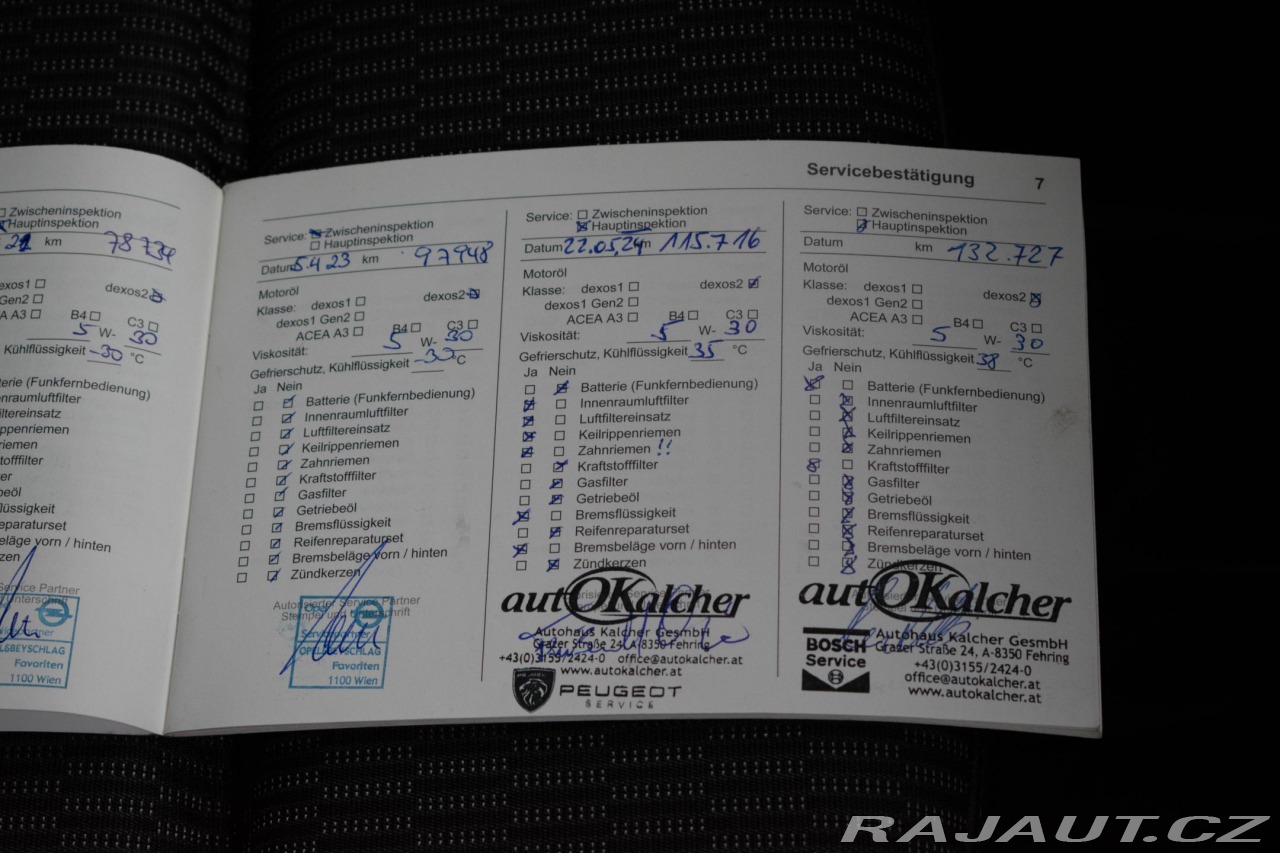 Servicebestätigung 7
Zwischeninspektion
Hauptinspektion
21 km 78734
dexos1 dexos2
Gen2
A A3 B4 C3
5 W- 30
Kühlflüssigkeit -30 °C
terie (Funkfernbedienung)
nraumluftfilter
ftfiltereinsatz
ppenriemen
riemen
tofffilter
ter
eöl
flüssigkeit
reparaturset
eläge vorn / hinten
zen
Service Partner
Unterschrift
OPELSBEYSCHLAG
Favoriten
1100 Wien
Service: Zwischeninspektion
Hauptinspektion
Datum 5.4 23 km 97948
Motoröl
Klasse: dexos1 dexos2
dexos1 Gen2
ACEA A3 B4 C3
Viskosität: 5 W- 30
Gefrierschutz, Kühlflüssigkeit -30 °C
Ja Nein
Batterie (Funkfernbedienung)
Innenraumluftfilter
Luftfiltereinsatz
Keilrippenriemen
Zahnriemen
Kraftstofffilter
Gasfilter
Getriebeöl
Bremsflüssigkeit
Reifenreparaturset
Bremsbeläge vorn / hinten
Zündkerzen
Autorisierter Service Partner
Stempel und Unterschrift
Favoriten
1100 Wien
Service: Zwischeninspektion
Hauptinspektion
Datum 22.05.24 km 115.716
Motoröl
Klasse: dexos1 dexos2
dexos1 Gen2
ACEA A3 B4 C3
Viskosität: 5 W- 30
Gefrierschutz, Kühlflüssigkeit 35 °C
Ja Nein
Batterie (Funkfernbedienung)
Innenraumluftfilter
Luftfiltereinsatz
Keilrippenriemen
Zahnriemen !!
Kraftstofffilter
Gasfilter
Getriebeöl
Bremsflüssigkeit
Reifenreparaturset
Bremsbeläge vorn / hinten
Zündkerzen
autOKalcher
Autohaus Kalcher GesmbH
Grazer Straße 24, A-8350 Fehring
+43(0)3155/2424-0 office@autokalcher.at
www.autokalcher.at
PEUGEOT
SERVICE
Service: Zwischeninspektion
Hauptinspektion
Datum km 132.727
Motoröl
Klasse: dexos1 dexos2
dexos1 Gen2
ACEA A3 B4 C3
Viskosität: 5 W- 30
Gefrierschutz, Kühlflüssigkeit 38 °C
Ja Nein
Batterie (Funkfernbedienung)
Innenraumluftfilter
Luftfiltereinsatz
Keilrippenriemen
Zahnriemen
Kraftstofffilter
Gasfilter
Getriebeöl
Bremsflüssigkeit
Reifenreparaturset
Bremsbeläge vorn / hinten
Zündkerzen
autOKalcher
BOSCH
Service
Autohaus Kalcher GesmbH
Grazer Straße 24, A-8350 Fehring
+43(0)3155/2424-0
office@autokalcher.at
www.autokalcher.at
RAJAUT.CZ